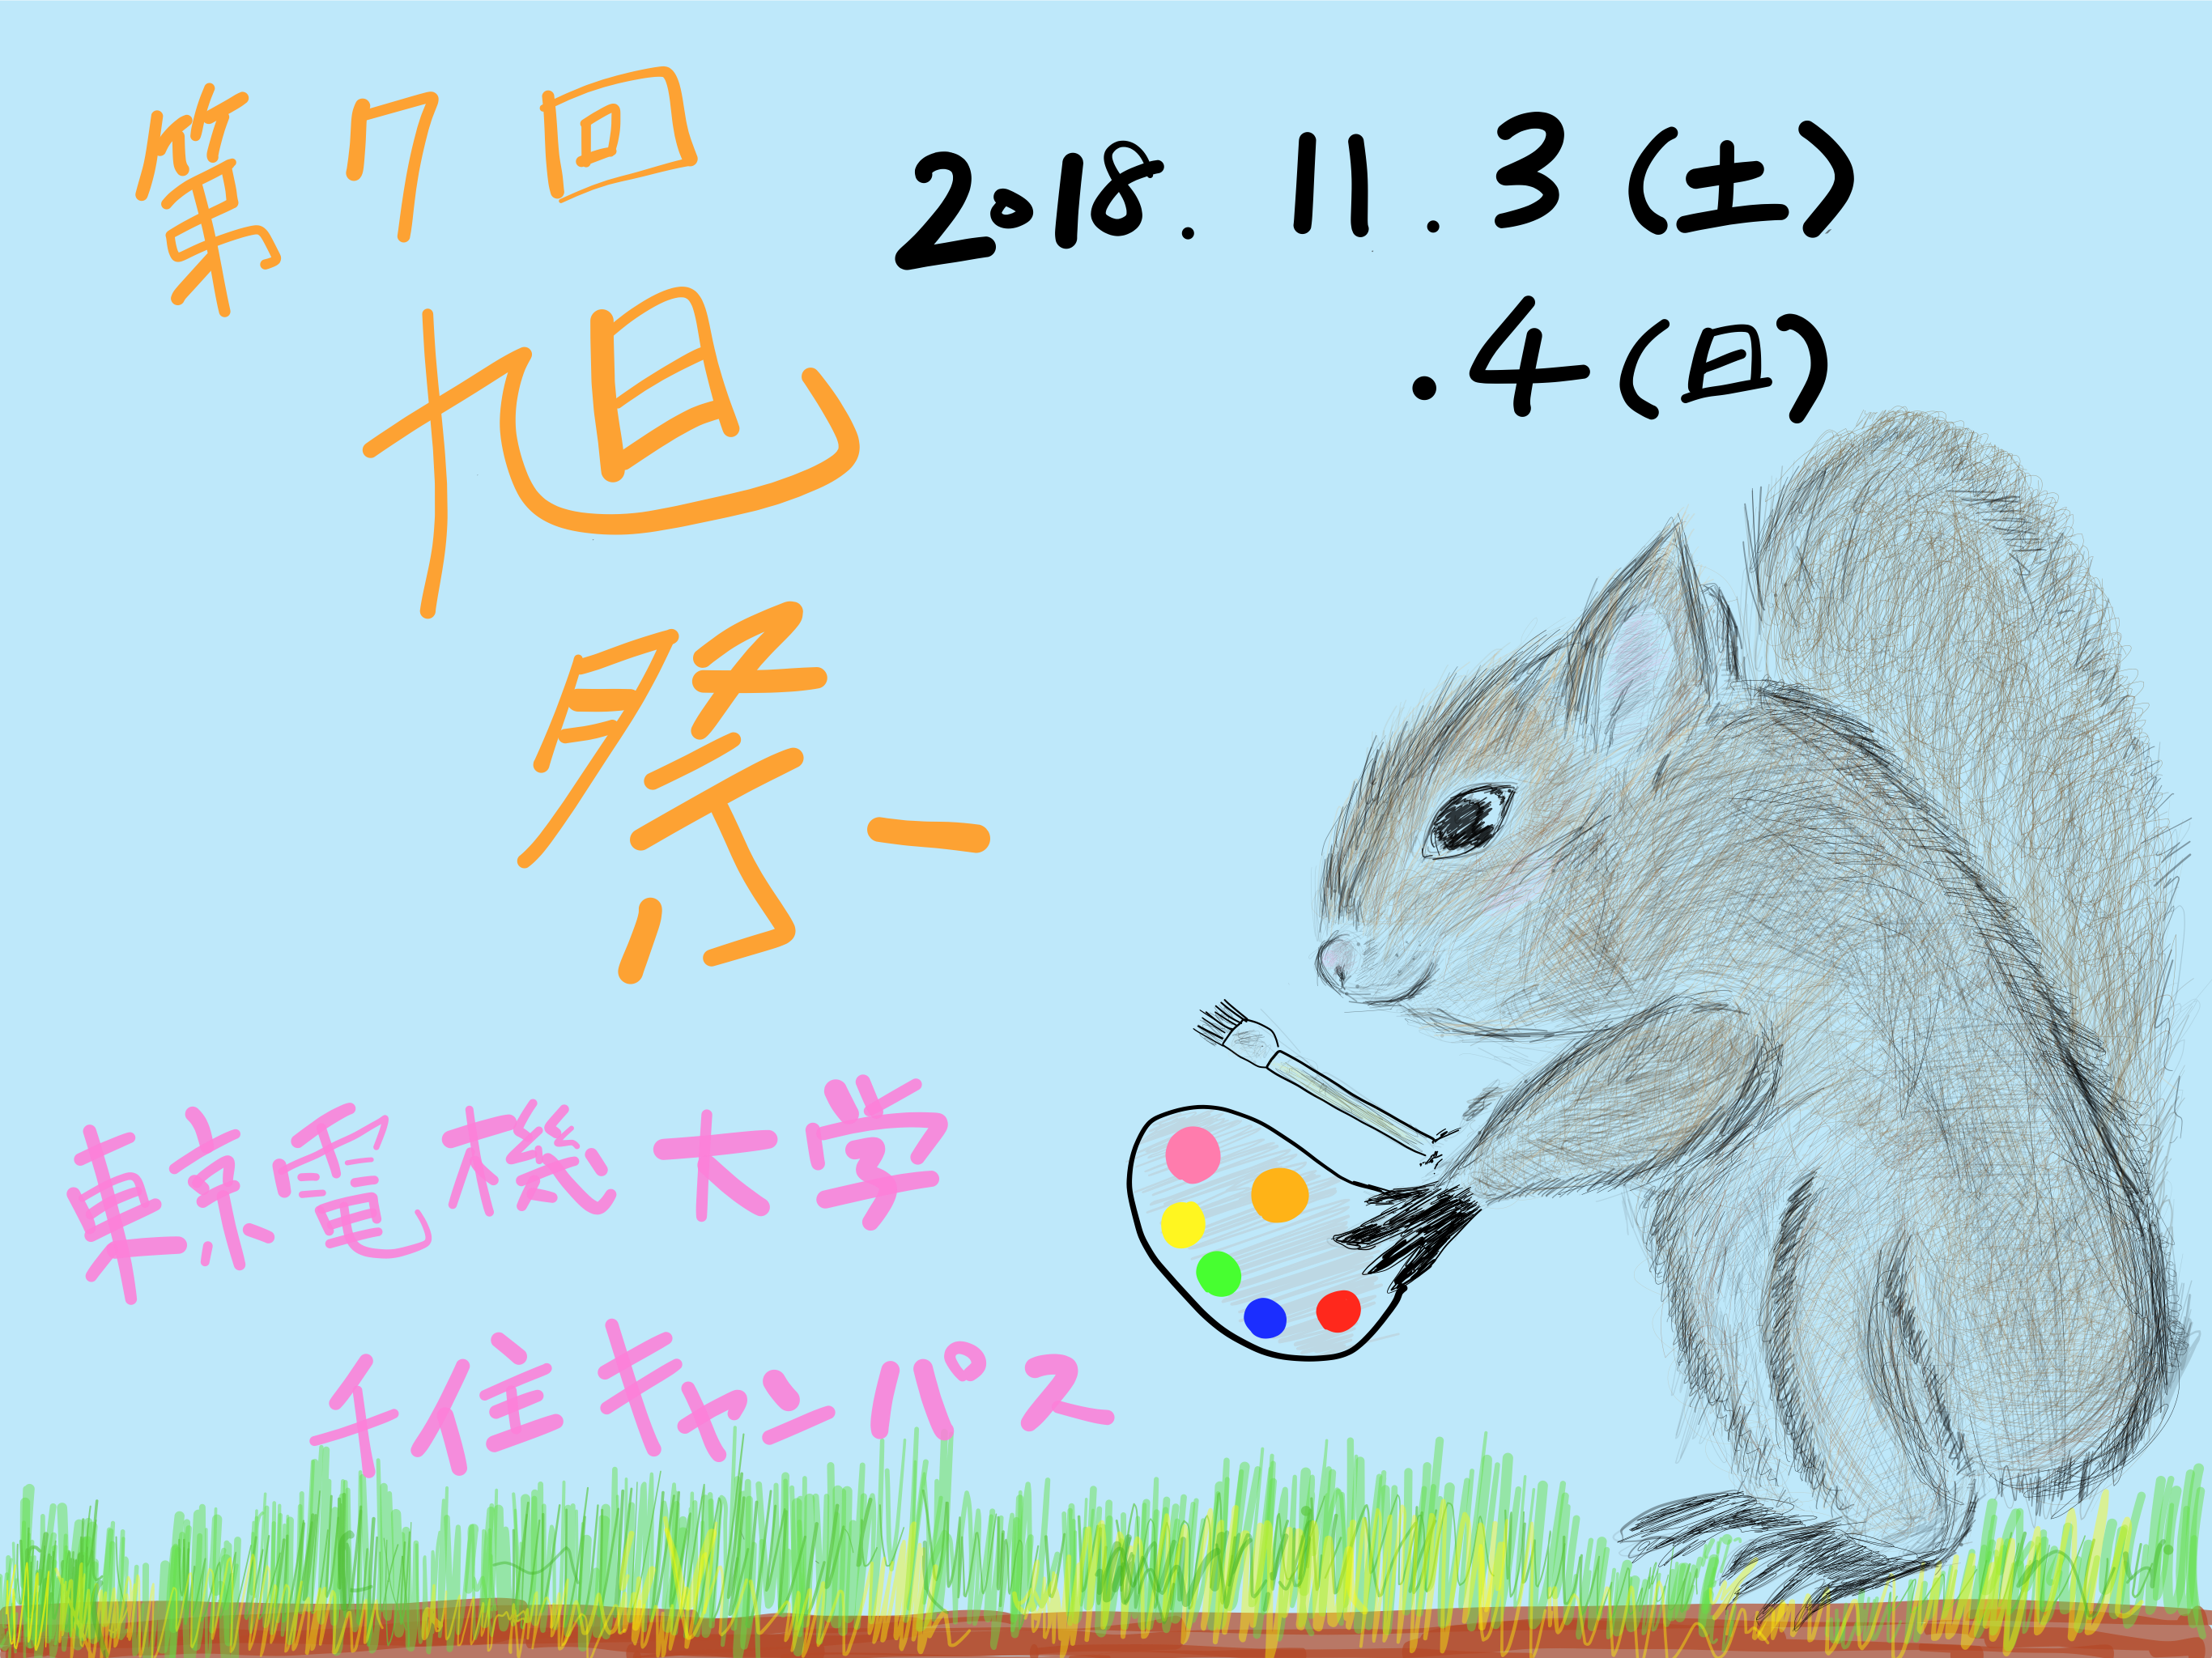 第7回
旭
祭
2018. 11. 3(土)
.4(日)
東京電機大学
千住キャンパス